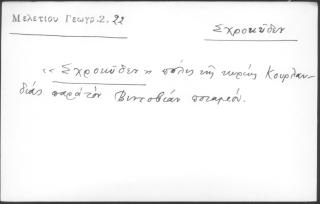 Μελετίου Γεωγρ. 2. 22
Σχροκῦδεν
«Σχροκῦδεν» πόλις τῆς κυρίως Κουρλαν-
δίας παρὰ τὸν Βιντοβίαν ποταμόν.